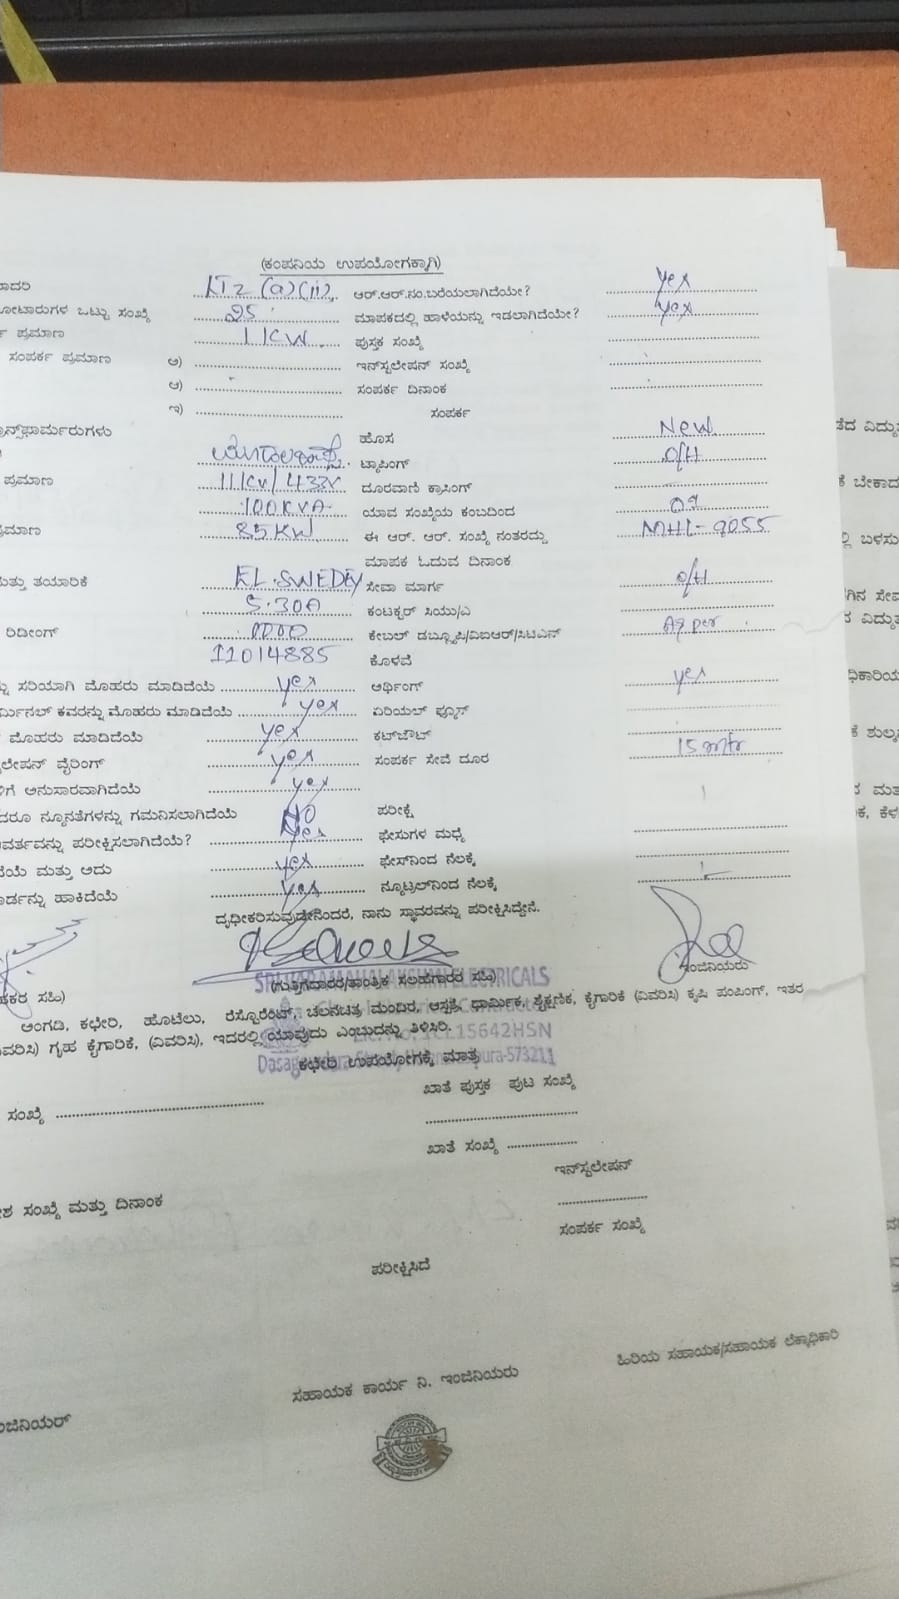 (ಕಂಪನಿಯ ಉಪಯೋಗಕ್ಕಾಗಿ)
ಾದರಿ LT2 (a)(ii) ಆರ್.ಆರ್.ನಂ.ಬರೆಯಲಾಗಿದೆಯೇ? Yes
ೋಟಾರುಗಳ ಒಟ್ಟು ಸಂಖ್ಯೆ 25 ಮಾಪಕದಲ್ಲಿ ಹಾಳೆಯನ್ನು ಇಡಲಾಗಿದೆಯೇ? Yes
ಪ್ರಮಾಣ 1 KW ಪುಸ್ತಕ ಸಂಖ್ಯೆ
ಸಂಪರ್ಕ ಪ್ರಮಾಣ ಅ) ಇನ್‌ಸ್ಟಲೇಷನ್ ಸಂಖ್ಯೆ
ಆ) ಸಂಪರ್ಕ ದಿನಾಂಕ
ಇ) ಸಂಪರ್ಕ
ಾನ್ಸ್‌ಫಾರ್ಮರುಗಳು ಹೊಸ New
ಟ್ಯಾಪಿಂಗ್ O/H
ಪ್ರಮಾಣ 11KV/433V ದೂರವಾಣಿ ಕ್ರಾಸಿಂಗ್
100KVA ಯಾವ ಸಂಖ್ಯೆಯ ಕಂಬದಿಂದ 09
ಪ್ರಮಾಣ 85KW ಈ ಆರ್. ಆರ್. ಸಂಖ್ಯೆ ನಂತರದ್ದು MHL-9055
ಮಾಪಕ ಓದುವ ದಿನಾಂಕ
ಮತ್ತು ತಯಾರಿಕೆ EL.SWEDEY ಸೇವಾ ಮಾರ್ಗ O/H
5.30A ಕಂಟಕ್ಟರ್ ಸಿಯು/ಎ
ರಿಡೀಂಗ್ 0000 ಕೇಬಲ್ ಡಬ್ಲ್ಯೂಪಿ/ವಿಐಆರ್/ಸಿಟಿಎಸ್ As per
11014885 ಕೊಳವೆ
ನ್ನು ಸರಿಯಾಗಿ ಮೊಹರು ಮಾಡಿದೆಯೆ yes ಅರ್ಥಿಂಗ್ yes
ರ್ಮಿನಲ್ ಕವರನ್ನು ಮೊಹರು ಮಾಡಿದೆಯೆ yes ಏರಿಯಲ್ ಫ್ಯೂಸ್
ಮೊಹರು ಮಾಡಿದೆಯೆ yes ಕಟ್‌ಔಟ್
ಲೇಷನ್ ವೈರಿಂಗ್ yes ಸಂಪರ್ಕ ಸೇವೆ ದೂರ 15 mtr
ಳಿಗೆ ಅನುಸಾರವಾಗಿದೆಯೆ yes
ದರೂ ನ್ಯೂನತೆಗಳನ್ನು ಗಮನಿಸಲಾಗಿದೆಯೆ NO ಪರೀಕ್ಷೆ
ವರ್ತವನ್ನು ಪರೀಕ್ಷಿಸಲಾಗಿದೆಯೆ? Yes ಫೇಸುಗಳ ಮಧ್ಯೆ
ದೆಯೆ ಮತ್ತು ಅದು yes ಫೇಸ್‌ನಿಂದ ನೆಲಕ್ಕೆ
ೋರ್ಡನ್ನು ಹಾಕಿದೆಯೆ yes ನ್ಯೂಟ್ರಲ್‌ನಿಂದ ನೆಲಕ್ಕೆ
ದೃಢೀಕರಿಸುವುದೇನೆಂದರೆ, ನಾನು ಸ್ಥಾವರವನ್ನು ಪರೀಕ್ಷಿಸಿದ್ದೇನೆ.
ಹಕರ ಸಹಿ) (ಗುತ್ತಿಗೆದಾರರ/ತಾಂತ್ರಿಕ ಸಲಹೆಗಾರರ ಸಹಿ) ಇಂಜಿನಿಯರು
ELECTRICALS
ಅಂಗಡಿ, ಕಛೇರಿ, ಹೊಟೆಲು, ರೆಸ್ಟೊರೆಂಟ್, ಚಲನಚಿತ್ರ ಮಂದಿರ, ಆಸ್ಪತ್ರೆ, ಧಾರ್ಮಿಕ, ಶೈಕ್ಷಣಿಕ, ಕೈಗಾರಿಕೆ (ವಿವರಿಸಿ) ಕೃಷಿ ಪಂಪಿಂಗ್, ಇತರ
ವಿವರಿಸಿ) ಗೃಹ ಕೈಗಾರಿಕೆ, (ವಿವರಿಸಿ), ಇದರಲ್ಲಿ ಯಾವುದು ಎಂಬುದನ್ನು ತಿಳಿಸಿರಿ.
15642HSN
ಕಛೇರಿ ಉಪಯೋಗಕ್ಕೆ ಮಾತ್ರ
573211
ಖಾತೆ ಪುಸ್ತಕ ಪುಟ ಸಂಖ್ಯೆ
ಸಂಖ್ಯೆ
ಖಾತೆ ಸಂಖ್ಯೆ
ಇನ್‌ಸ್ಟಲೇಷನ್
ಶ ಸಂಖ್ಯೆ ಮತ್ತು ದಿನಾಂಕ
ಸಂಪರ್ಕ ಸಂಖ್ಯೆ
ಪರೀಕ್ಷಿಸಿದೆ
ಹಿರಿಯ ಸಹಾಯಕ/ಸಹಾಯಕ ಲೆಕ್ಕಾಧಿಕಾರಿ
ಸಹಾಯಕ ಕಾರ್ಯ ನಿ. ಇಂಜಿನಿಯರು
ಂಜಿನಿಯರ್